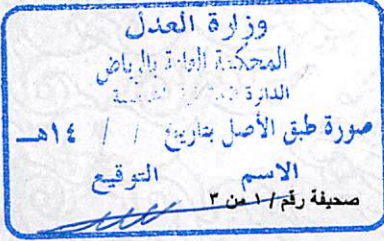 وزارة العدل
المحكمة العامة بالرياض
الدائرة
صورة طبق الأصل بتاريخ / / ١٤هـ
الاسم التوقيع
صحيفة رقم / ١ من ٣